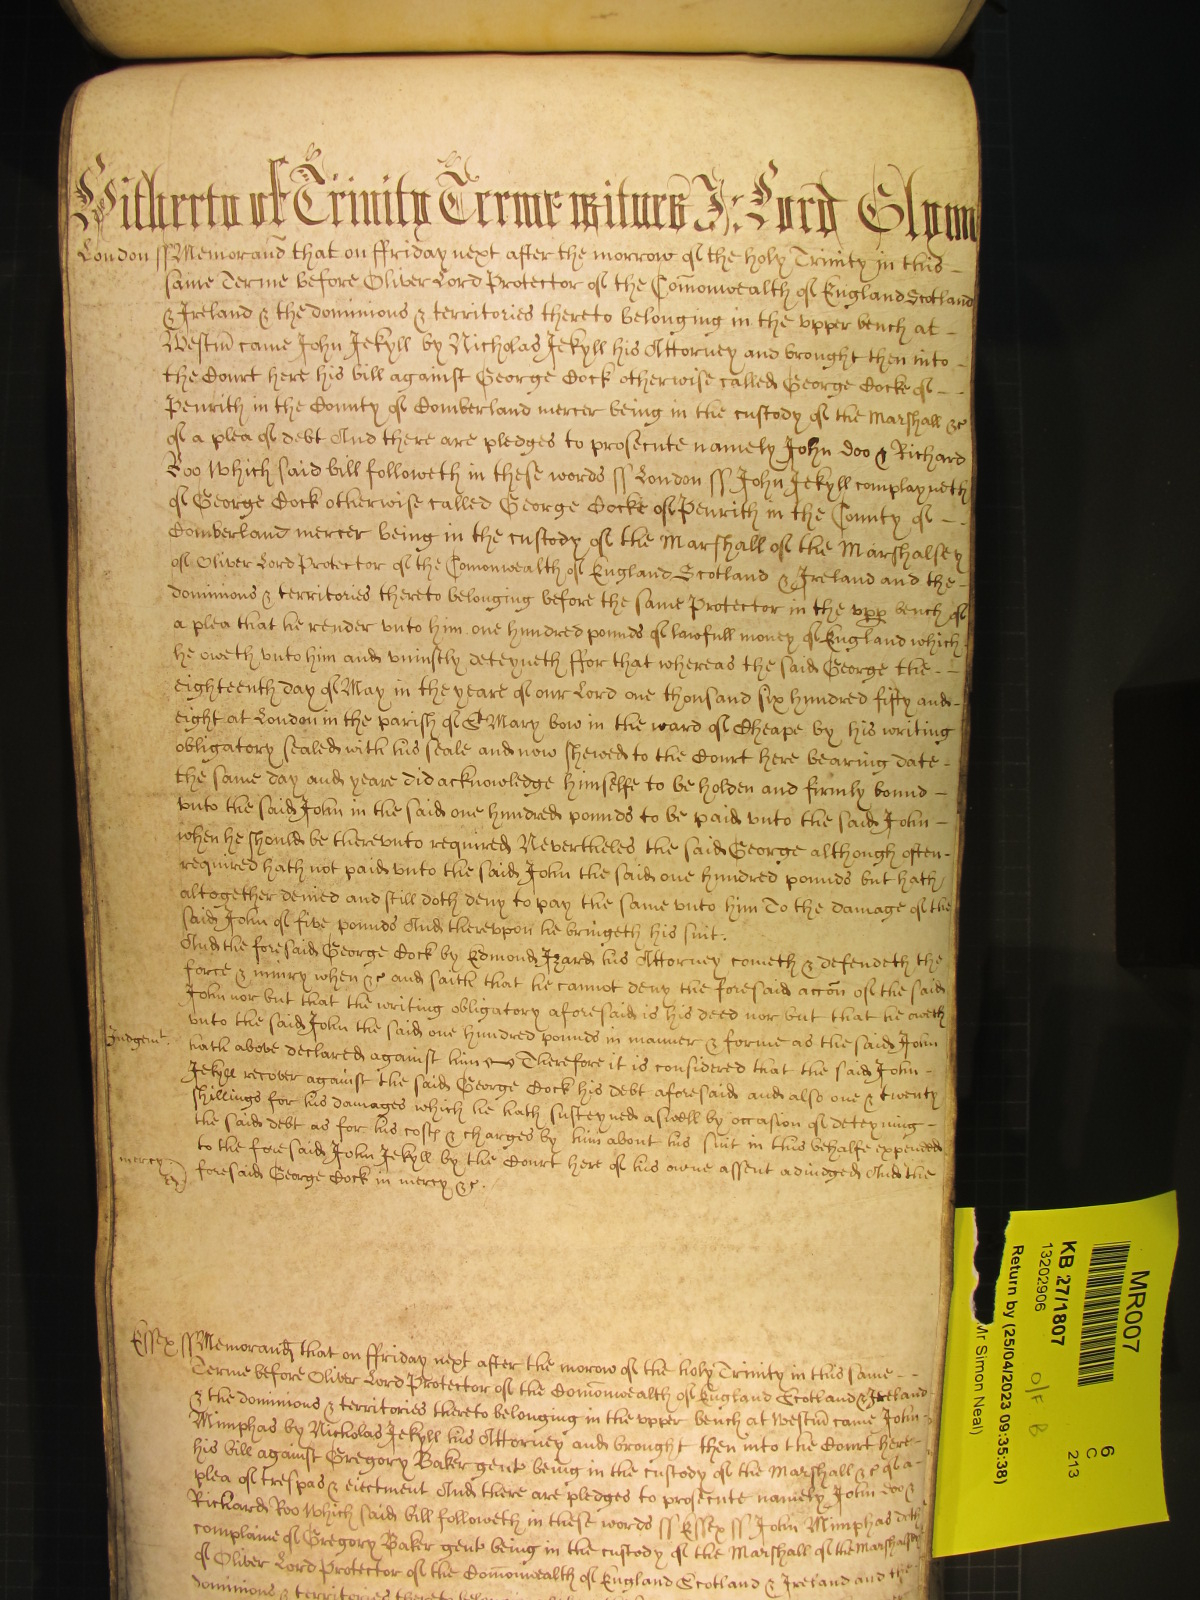 Hitherto of Trinity Terme witnes Jo: Lord Glynn
London ss Memorand that on ffriday next after the morrow of the holy Trinity in this
same Terme before Oliver Lord Protector of the Comonwealth of England Scotland
& Ireland & the dominions & territories thereto belonging in the vpper bench at
Westm̃ came John Jekyll by Nicholas Jekyll his Attorney and brought then into
the Court here his bill against George Cock otherwise called George Cocke of
Penrith in the County of Comberland mercer being in the custody of the Marshall &c
of a plea of debt And there are pledges to prosecute namely John doo & Richard
Roo Which said bill followeth in these words ss London ss John Jekyll complayneth
of George Cock otherwise called George Cocke of Penrith in the County of
Comberland mercer being in the custody of the Marshall of the Marshalsey
of Oliver Lord Protector of the Comonwealth of England Scotland & Ireland and the
dominions & territories thereto belonging before the same Protector in the vpp bench of
a plea that he render vnto him one hundred pounds of lawfull money of England which
he oweth vnto him and vniustly deteyneth ffor that whereas the said George the
eighteenth day of May in the yeare of our Lord one thousand six hundred fifty and
eight at London in the parish of St Mary bow in the ward of Cheape by his writing
obligatory sealed with his seale and now shewed to the Court here bearing date
the same day and yeare did acknowledge himselfe to be holden and firmly bound
vnto the said John in the said one hundred pounds to be paid vnto the said John
when he should be therevnto required Nevertheles the said George although often
required hath not paid vnto the said John the said one hundred pounds but hath
altogether denied and still doth deny to pay the same vnto him To the damage of the
said John of five pounds And therevpon he bringeth his suit.
And the foresaid George Cock by Edmond Izard his Attorney cometh & defendeth the
force & iniury when &c and saith that he cannot deny the foresaid accõn of the said
John nor but that the writing obligatory aforesaid is his deed nor but that he oweth
vnto the said John the said one hundred pounds in manner & forme as the said John
Judgem̃t. hath above declared against him Therefore it is considered that the said John
Jekyll recover against the said George Cock his debt aforesaid and also one & twenty
shillings for his damages which he hath susteyned aswell by occasion of deteyning
the said debt as for his costs & charges by him about his suit in this behalfe expended
to the foresaid John Jekyll by the Court here of his owne assent adiudged And the
mercy foresaid George Cock in mercy &c.
Essex ss Memorand that on ffriday next after the morow of the holy Trinity in this same
Terme before Oliver Lord Protector of the Comonwealth of England Scotland & Ireland
& the dominions & territories thereto belonging in the vpper bench at Westm̃ came John
Mimphas by Nicholas Jekyll his Attorney and brought then into the Court here
his bill against Gregory Baker gent being in the custody of the Marshall &c of a
plea of trespas & eiectment And there are pledges to prosecute namely John doo &
Richard Roo Which said bill followeth in these words ss Essex ss John Mimphas doth
complaine of Gregory Baker gent being in the custody of the Marshall of the Marshalsey
of Oliver Lord Protector of the Comonwealth of England Scotland & Ireland and the
dominions & territories thereto
MR007
KB 27/1807
13202906
Return by (25/04/2023 09:35:38)
Mr Simon Neal)
O/F B
6
C
213